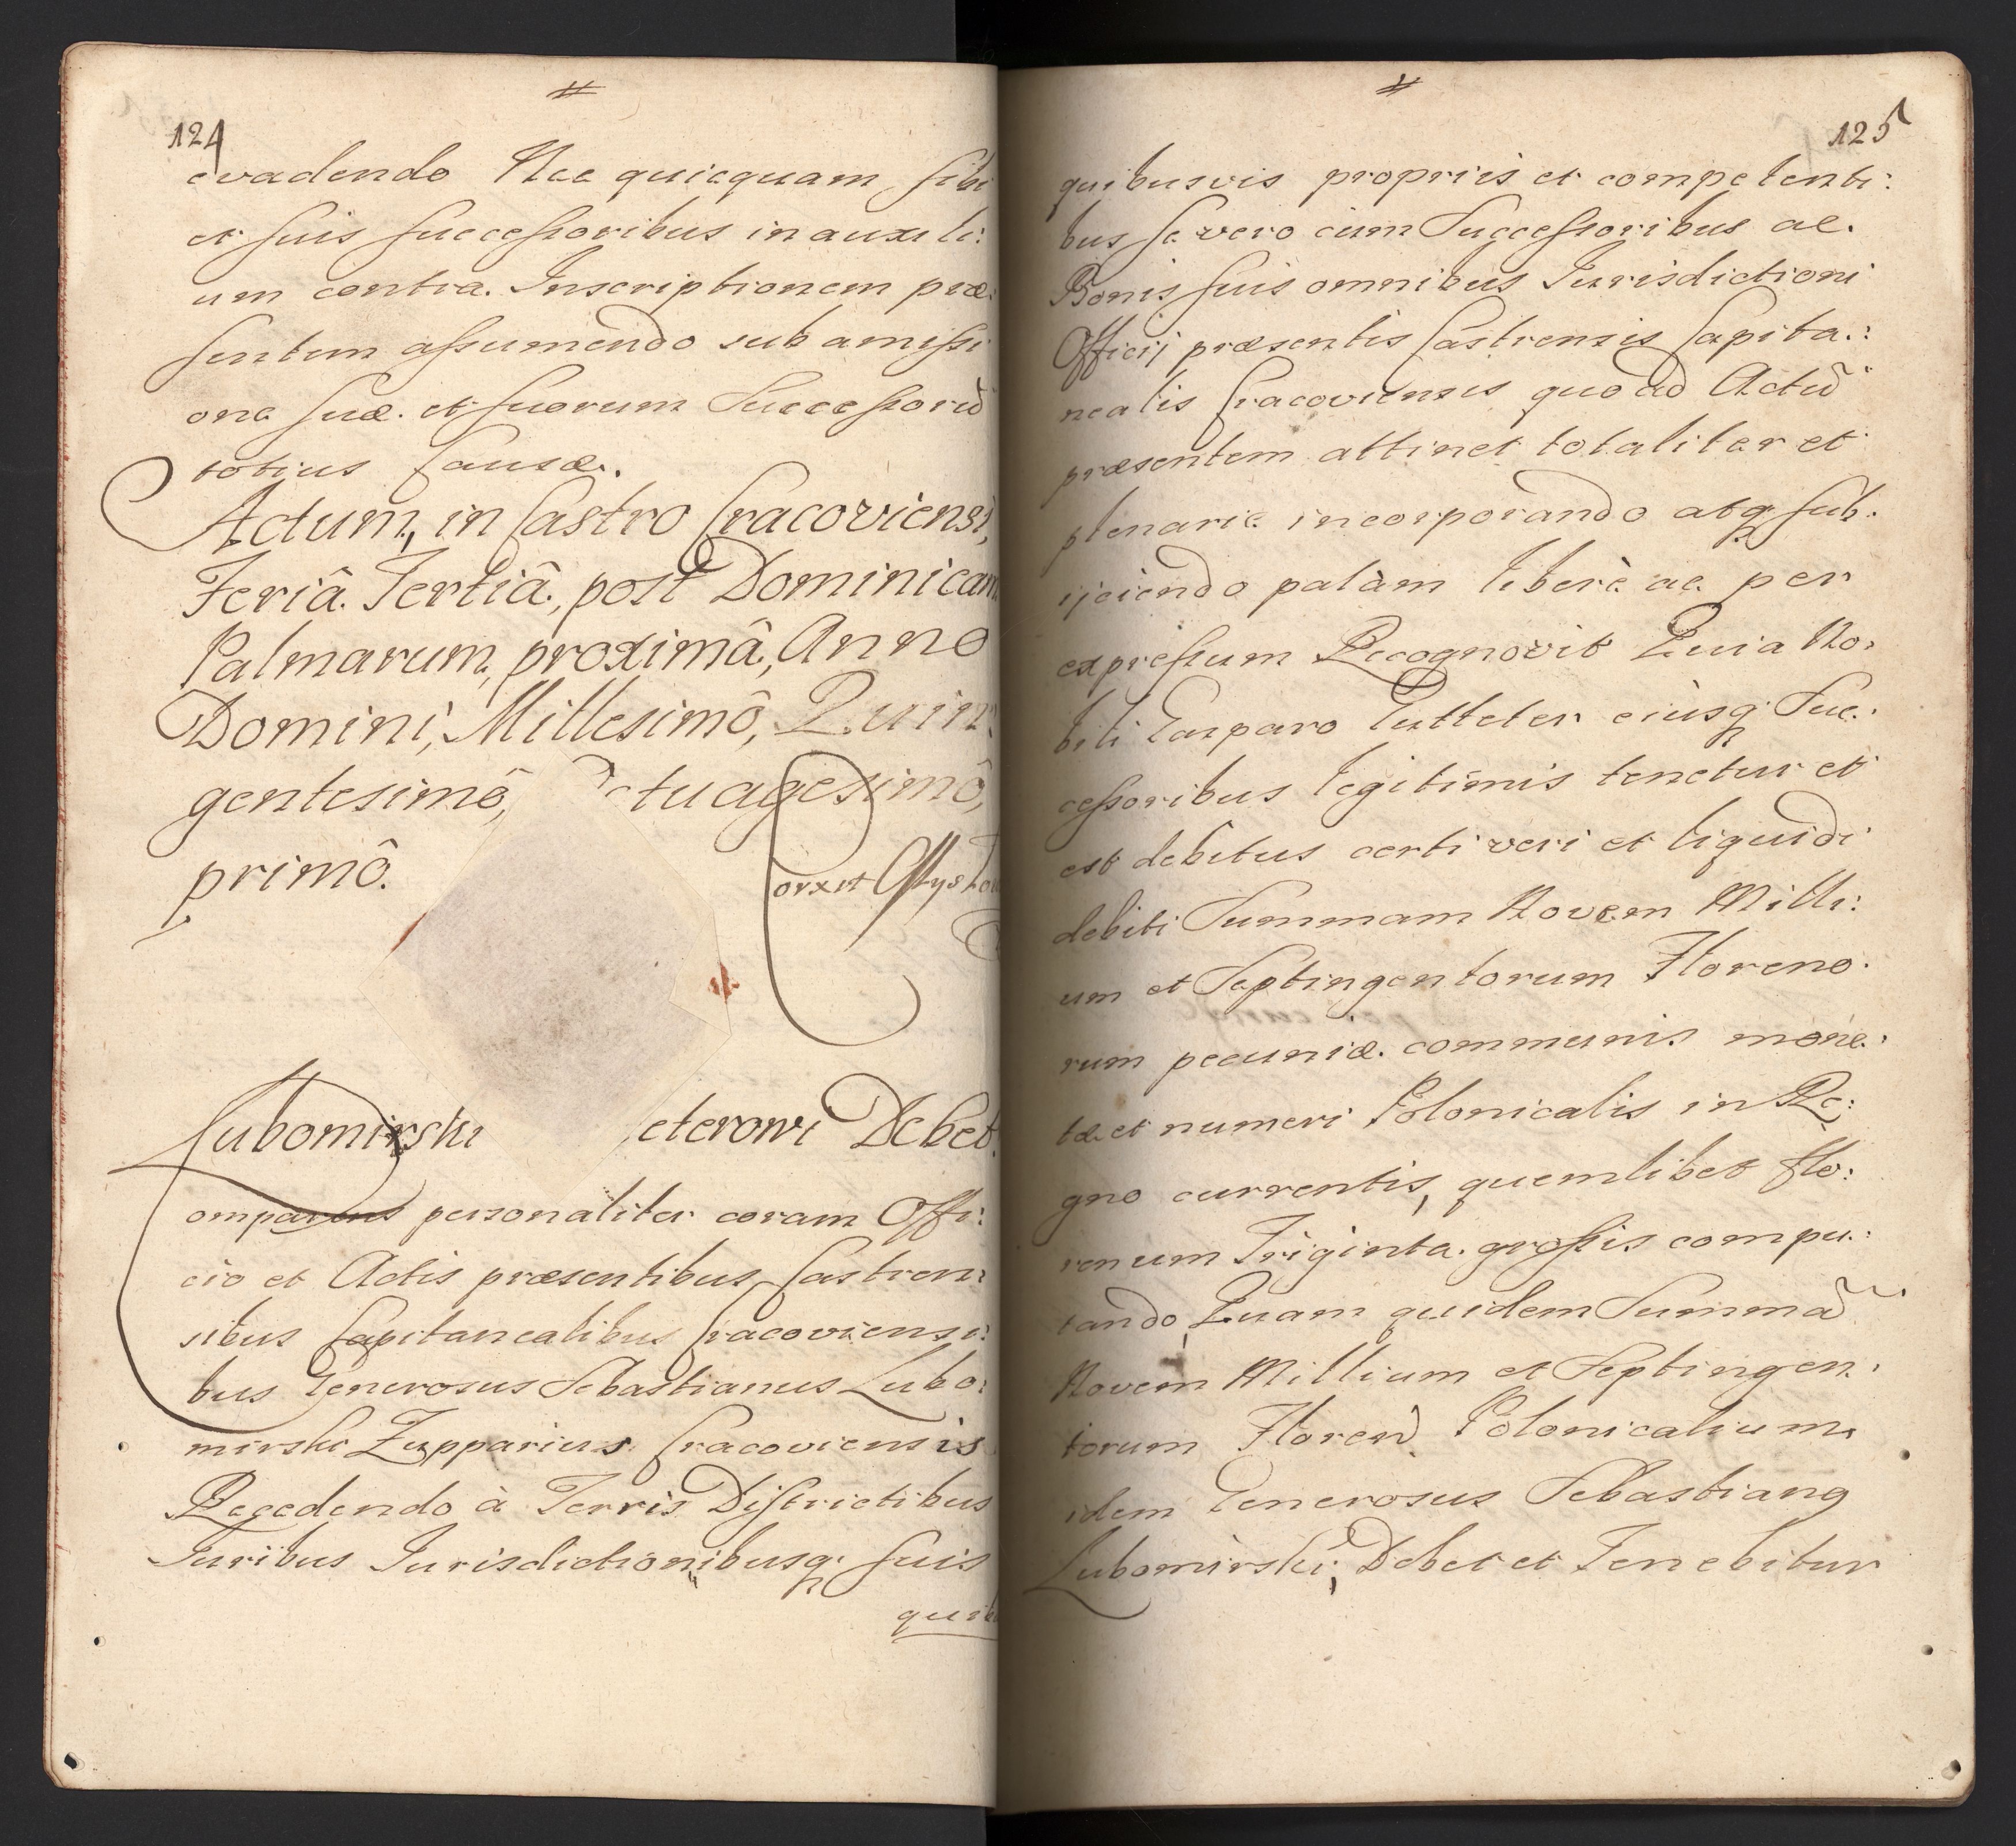 124
evadendo Nec quicquam sibi
et suis successoribus in auxili:
um contra Inscriptionem præ:
sentem assumendo sub amissi
one suæ et suorum Successorũ
totius Causæ.
Actum, in Castro Cracoviensi,
Feriâ Tertiâ, post Dominicam
Palmarum, proximâ, Anno
Domini, Millesimô, Quin:
gentesimô, ctuagesimô,
primô.
orxit
Lubomirski eterowi Debet.
omparens personaliter coram Offi:
cio et Actis præsentibus Castren:
sibus Capitanealibus Cracoviensi:
bus Generosus Sebastianus Lubo:
mirski Zupparius Cracoviensis
Recedendo à Terris Districtibus
Iuribus Iurisdictionibusq; suis
quib
125
quibusvis propriis et competenti:
bus se vero cum Successoribus ac
Bonis suis omnibus Iurisdictioni
Officij præsentis Castrensis Capita:
nealis Cracoviensis quo ad Actũ
præsentem attinet totaliter et
plenarie incorporando atq; sub:
ijciendo palàm liberè ac per
expressum Recognovit Quia No:
bili Casparo Gutteter eiusq; Suc:
cessoribus legitimis tenetur et
est debitus certi veri et liquidi
debiti Summam Novem Milli:
um et Septingentorum Floreno:
rum pecuniæ communis mone:
tæ et numeri Polonicalis in Re:
gno currentis, quemlibet flo:
renum Triginta grossis compu:
tando, Quam quidem Summã
Novem Millium et Septingen:
torum Floren. Polonicalium
idem Generosus Sebastiang
Lubomirski, Debet et Tenebitur